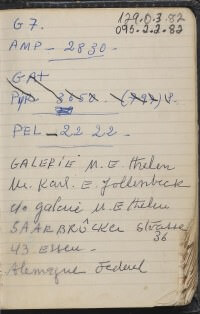 G 7.
129.0.3.82
095.2.2.82
AMP - 2830 -
GAT
PEL - 22 22 -
GALERIE M. E. Thelen
Mr. Karl. E. Jollenbeck
c/o galerie M E Thelen
SAARBRÜCKER Strasse
36
43 Essen -
Alemagne Federal